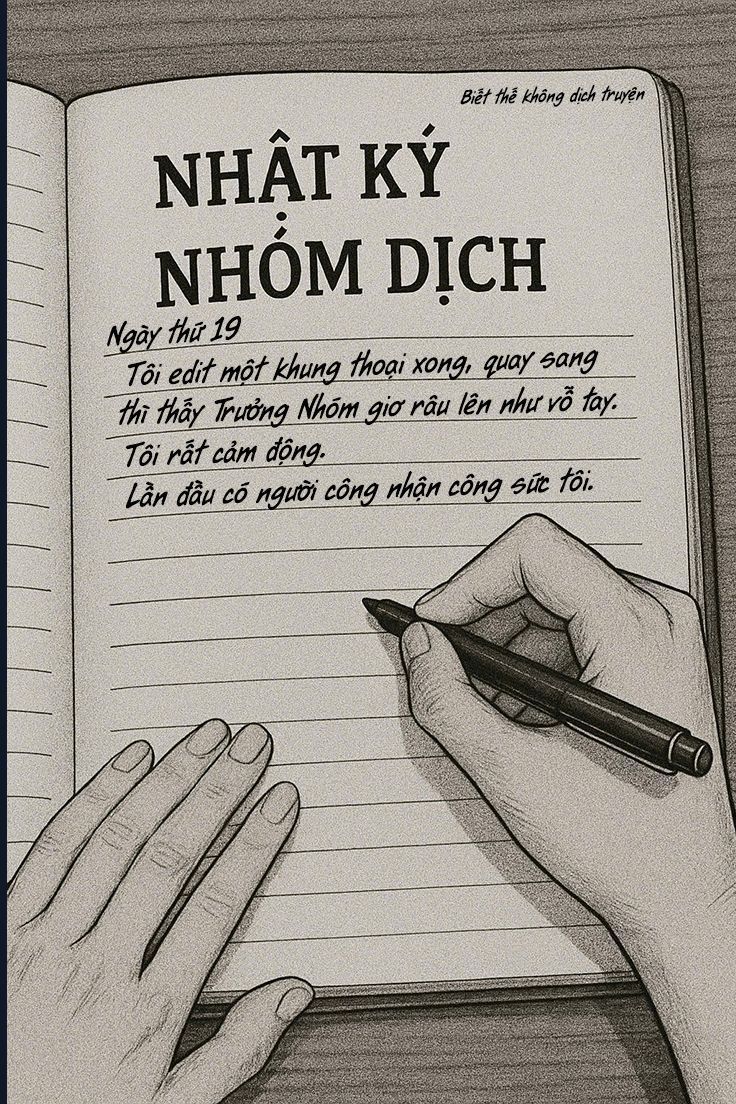 Biết thế không dịch truyện
NHẬT KÝ
NHÓM DỊCH
Ngày thứ 19
Tôi edit một khung thoại xong, quay sang
thì thấy Trưởng Nhóm giơ râu lên như vỗ tay.
Tôi rất cảm động.
Lần đầu có người công nhận công sức tôi.